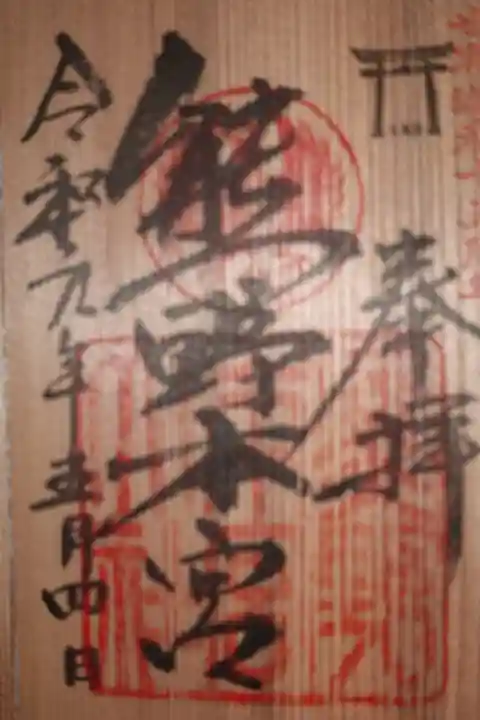 奉拝
熊野本宮
令和元年五月四日